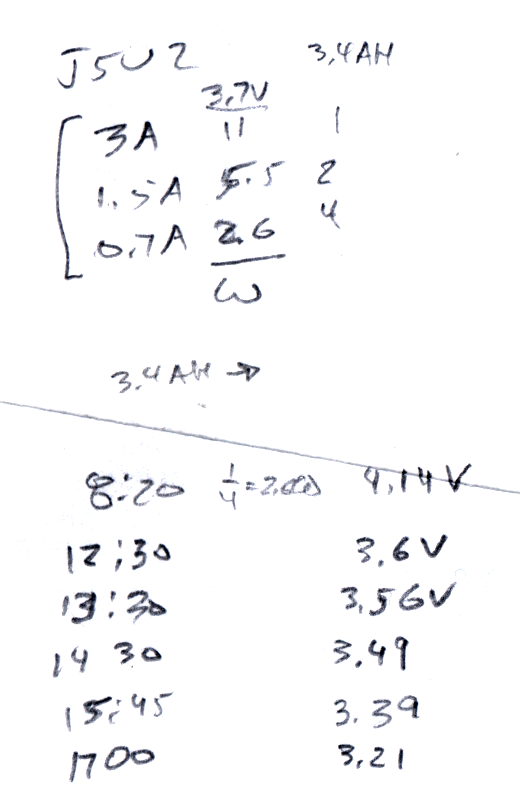 J5U2 3,4AH
3,7V
3A 11 1
1.5A 5.5 2
0.7A 2.6 4
W
3.4AH →
8:20 1/4= 4.14V
12:30 3.6V
13:30 3.56V
14 30 3.49
15:45 3.39
1700 3.21